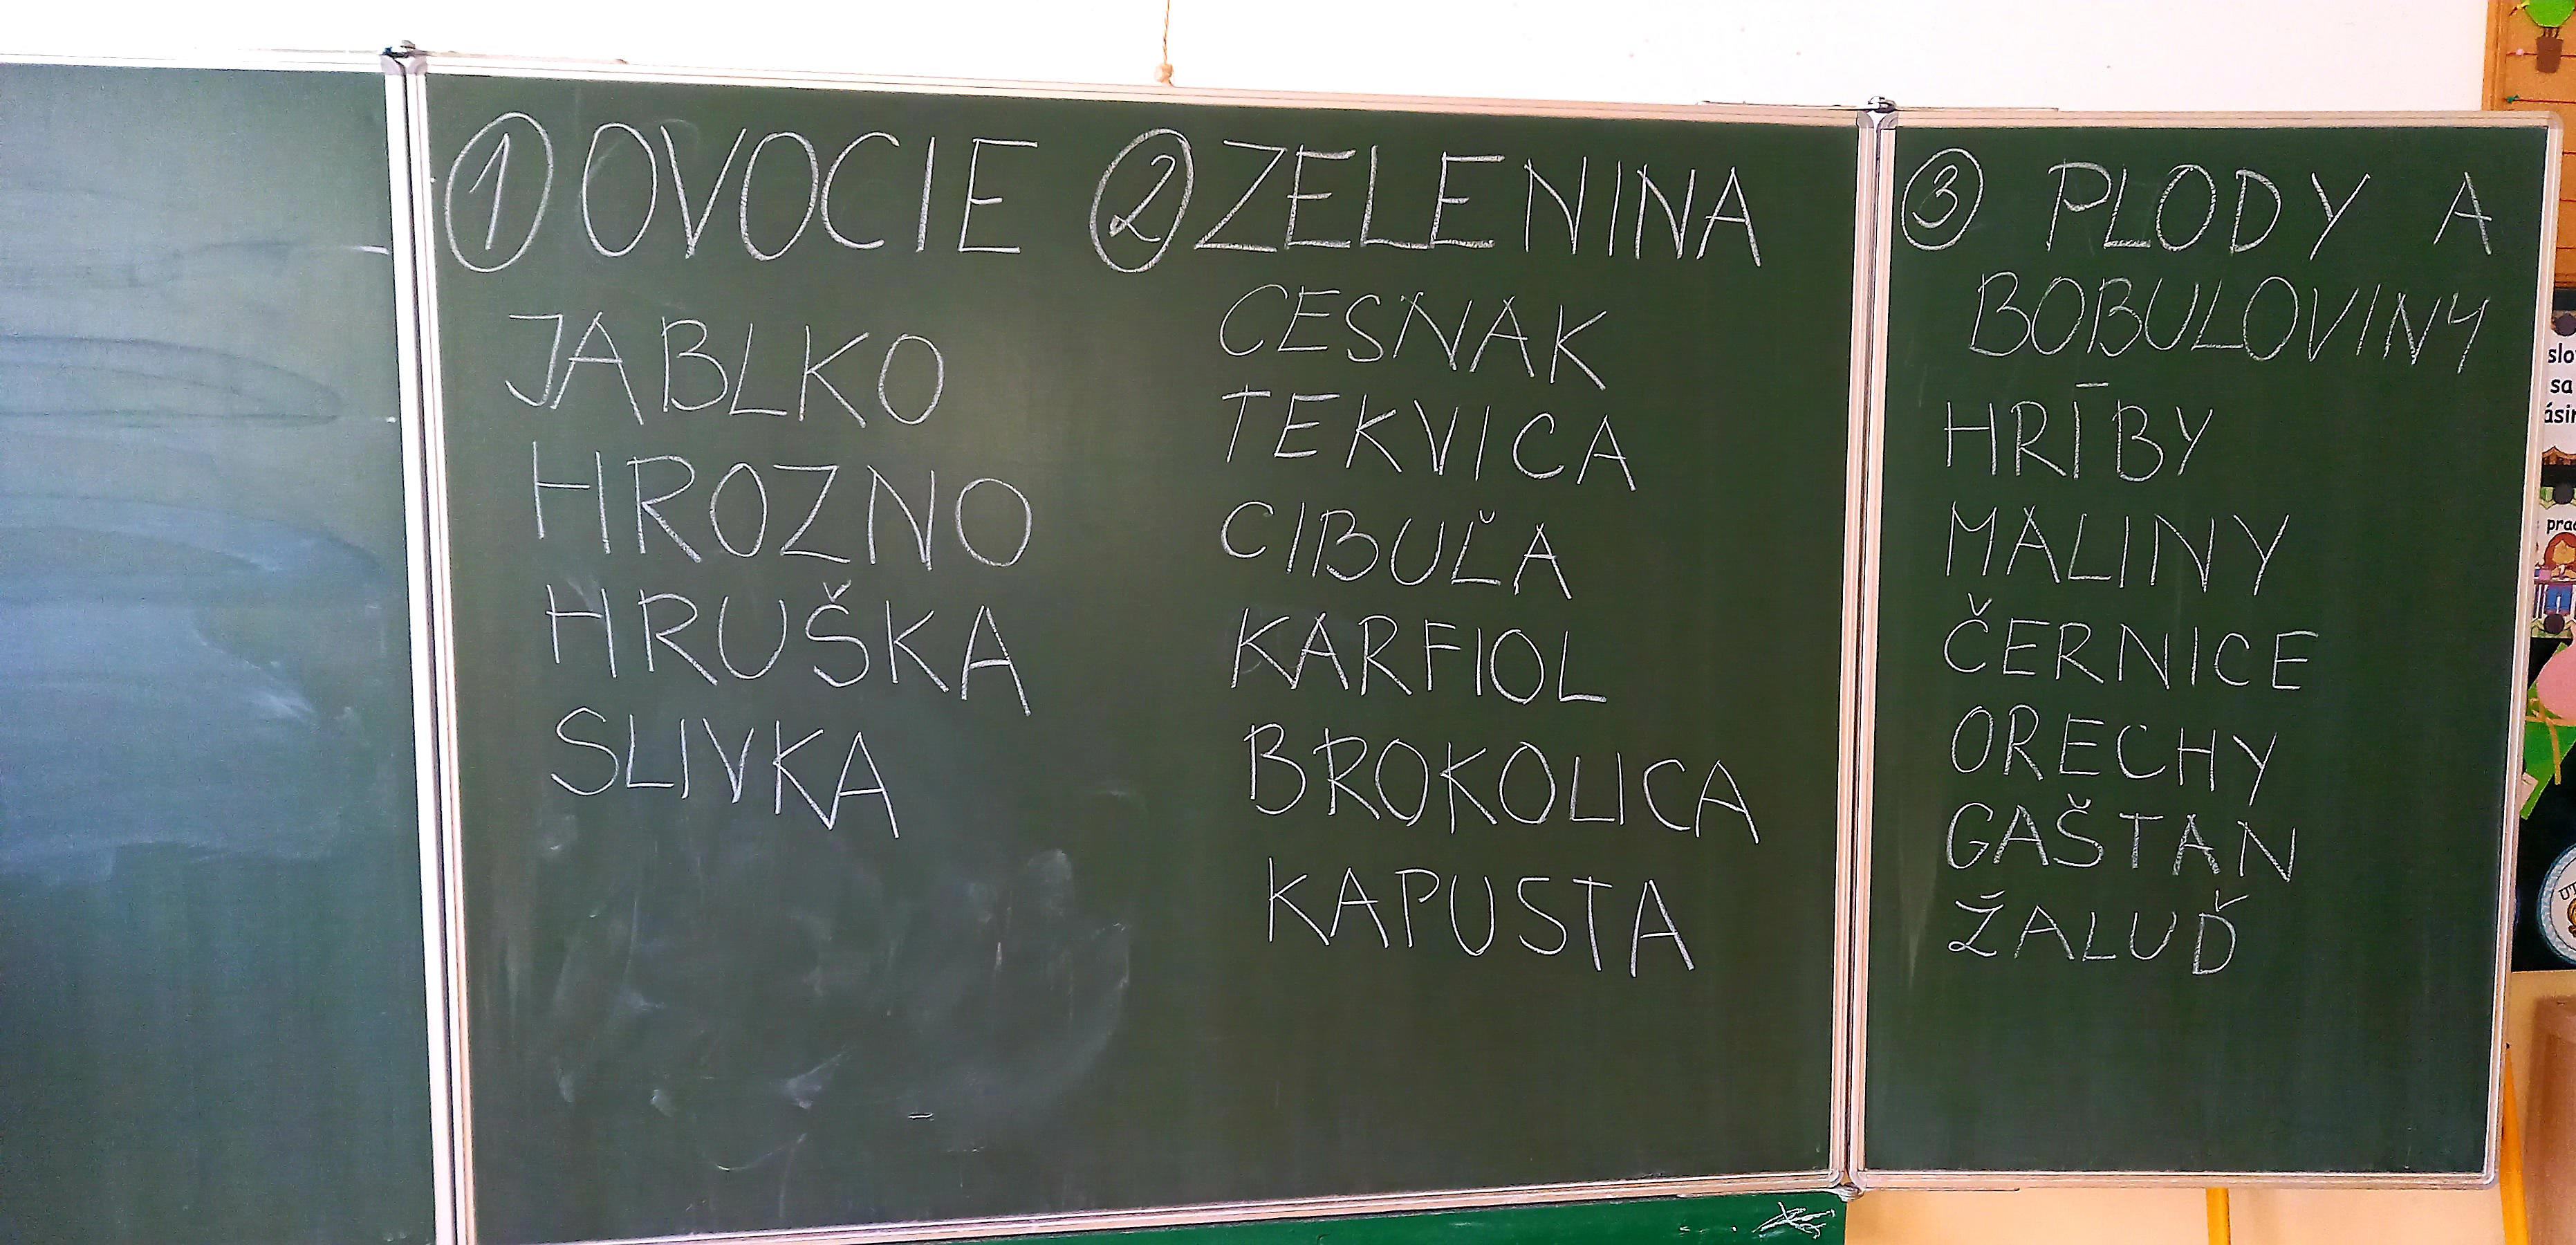 1 OVOCIE
JABLKO
HROZNO
HRUŠKA
SLIVKA
2 ZELENINA
CESNAK
TEKVICA
CIBUĽA
KARFIOL
BROKOLICA
KAPUSTA
3 PLODY A
BOBULOVINY
HRÍBY
MALINY
ČERNICE
ORECHY
GAŠTAN
ŽALUĎ
slo
sa
ásin
prac